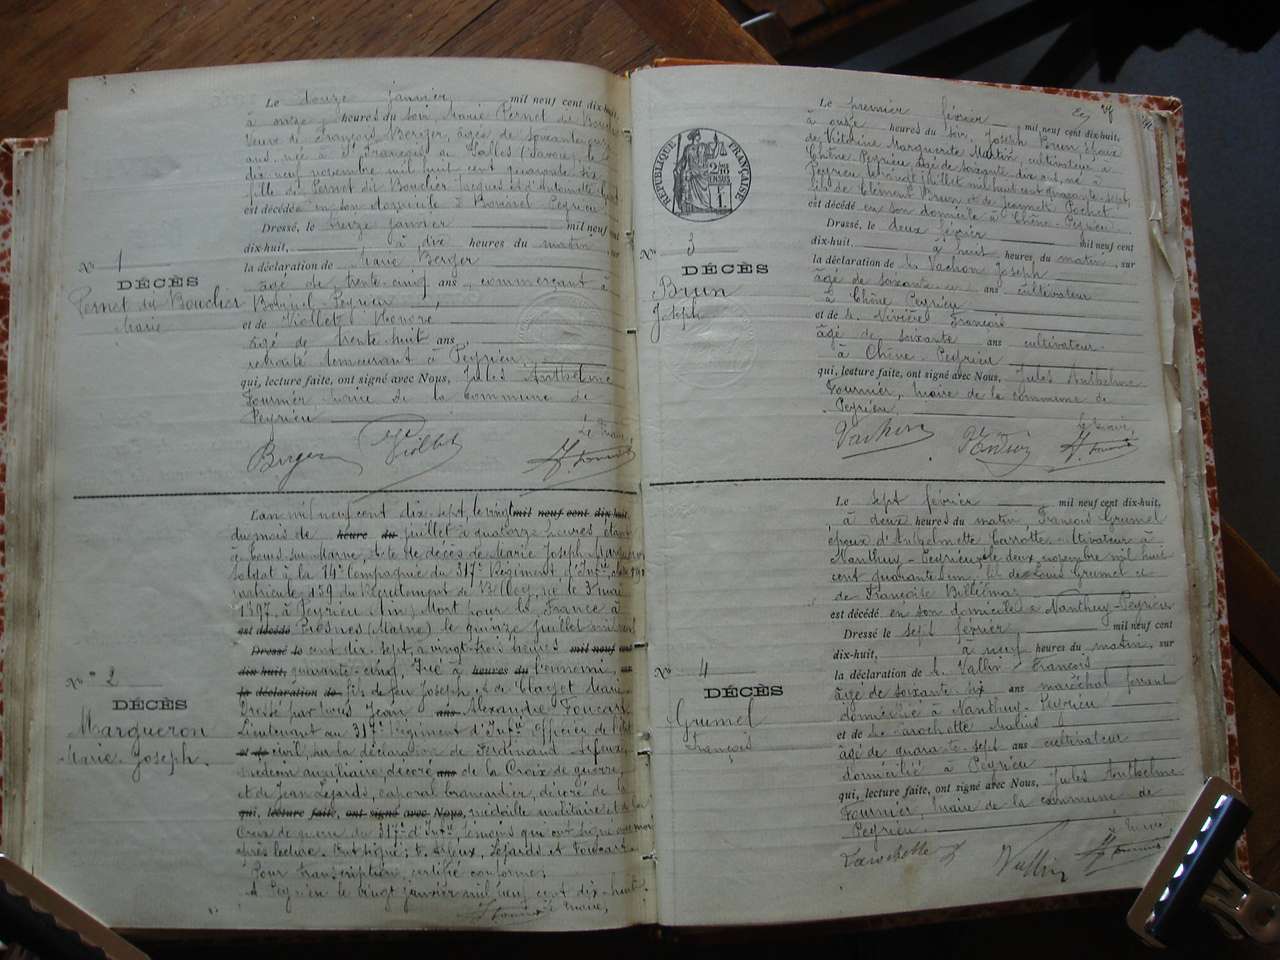 Le douze janvier mil neuf cent dix-huit,
à onze heures du soir, Marie Pernet du Bouclier
Veuve de François Berger, âgée de soixante onze
ans, née à St François de Salles (Savoie), le
dix neuf novembre mil huit cent quarante six
fille de Pernet du Bouclier Jacques et d'Antoinette
est décédée en son domicile à Peyrieu
Dressé, le treize janvier mil neuf cent
dix-huit, à dix heures du matin sur
la déclaration de Marie Berger
âgé de trente-cinq ans, commerçant à
Peyrieu,
et de Viollet Honoré
âgé de trente huit ans,
retraité demeurant à Peyrieu,
qui, lecture faite, ont signé avec Nous, Jules Anthelme
Fournier Maire de la Commune de
Peyrieu
Le Maire,
Berger Viollet Fournier
N° 1
DÉCÈS
Pernet du Bouclier
Marie
L'an mil neuf cent dix-sept, le vingt mil neuf cent dix-huit,
du mois de heure du juillet à quatorze heures, étant
à sur Marne, acte de décès de Marie Joseph Margueron
soldat à la 14e Compagnie du 317e Régiment d'Infie,
matricule 159 du Recrutement de Belley, né le 3 mai
1897, à Peyrieu Ain, Mort pour la France à
est décédé Prosnes (Marne) le quinze juillet mil neuf
Dressé le cent dix-sept, à vingt-trois heures mil neuf cent
dix-huit, quarante-cinq, Tué à heures du l'ennemi, sur
la déclaration de fils de feu Joseph et de Clayet Marie
Dressé par Nous Jean ans Alexandre Foucart
Lieutenant au 317e Régiment d'Infie Officier de l'état
et de civil, sur la déclaration de Ferdinand
médecin auxiliaire, décoré ans de la Croix de guerre,
et de Jean Lejards, caporal brancardier, décoré de la
qui, lecture faite, ont signé avec Nous, médaille militaire et de la
Croix de guerre du 317e d'Infie, témoins qui ont signé avec moi
après lecture. Ont signé: F. Lejards et Foucart.
Pour transcription, certifié conforme,
A Peyrieu le vingt janvier mil neuf cent dix-huit.
Fournier Le Maire,
N° 2
DÉCÈS
Margueron
Marie-Joseph.
RÉPUBLIQUE FRANÇAISE
Le premier février mil neuf cent dix-huit,
à onze heures du soir, Joseph Brun Epoux
de Victorine Marguerite Martin, cultivateur à
Chêne Peyrieu, âgé de soixante dix ans, né à
Peyrieu le vingt juillet mil huit cent quarante-sept,
fils de Clément Brun et de Jeannette Pochet
est décédé en son domicile à Chêne-Peyrieu
Dressé, le deux février mil neuf cent
dix-huit, à huit heures du matin, sur
la déclaration de M. Vachon Joseph
âgé de soixante ans cultivateur
à Chêne Peyrieu
et de M. Vivière François
âgé de soixante ans cultivateur
à Chêne-Peyrieu
qui, lecture faite, ont signé avec Nous, Jules Anthelme
Fournier, Maire de la commune de
Peyrieu,
Le Maire,
Vachon Fournier
N° 3
DÉCÈS
Brun
Joseph
Le sept février mil neuf cent dix-huit,
à deux heures du matin, François Grumel
époux d'Anthelmette Carrotte cultivateur à
Nanthuy-Peyrieu, né le deux novembre mil huit
cent quarante un, fils de Louis Grumel et
de Françoise Billiémaz
est décédé en son domicile à Nanthuy-Peyrieu
Dressé le sept février mil neuf cent
dix-huit, à neuf heures du matin, sur
la déclaration de M. Vallin François
âgé de soixante-six ans maréchal ferrant
domicilié à Nanthuy-Peyrieu
et de Larochette
âgé de quarante-sept ans cultivateur
domicilié à Peyrieu
qui, lecture faite, ont signé avec Nous, Jules Anthelme
Fournier, Maire de la commune de
Peyrieu.
Le Maire
Larochette Vallin Fournier
N° 4
DÉCÈS
Grumel
François